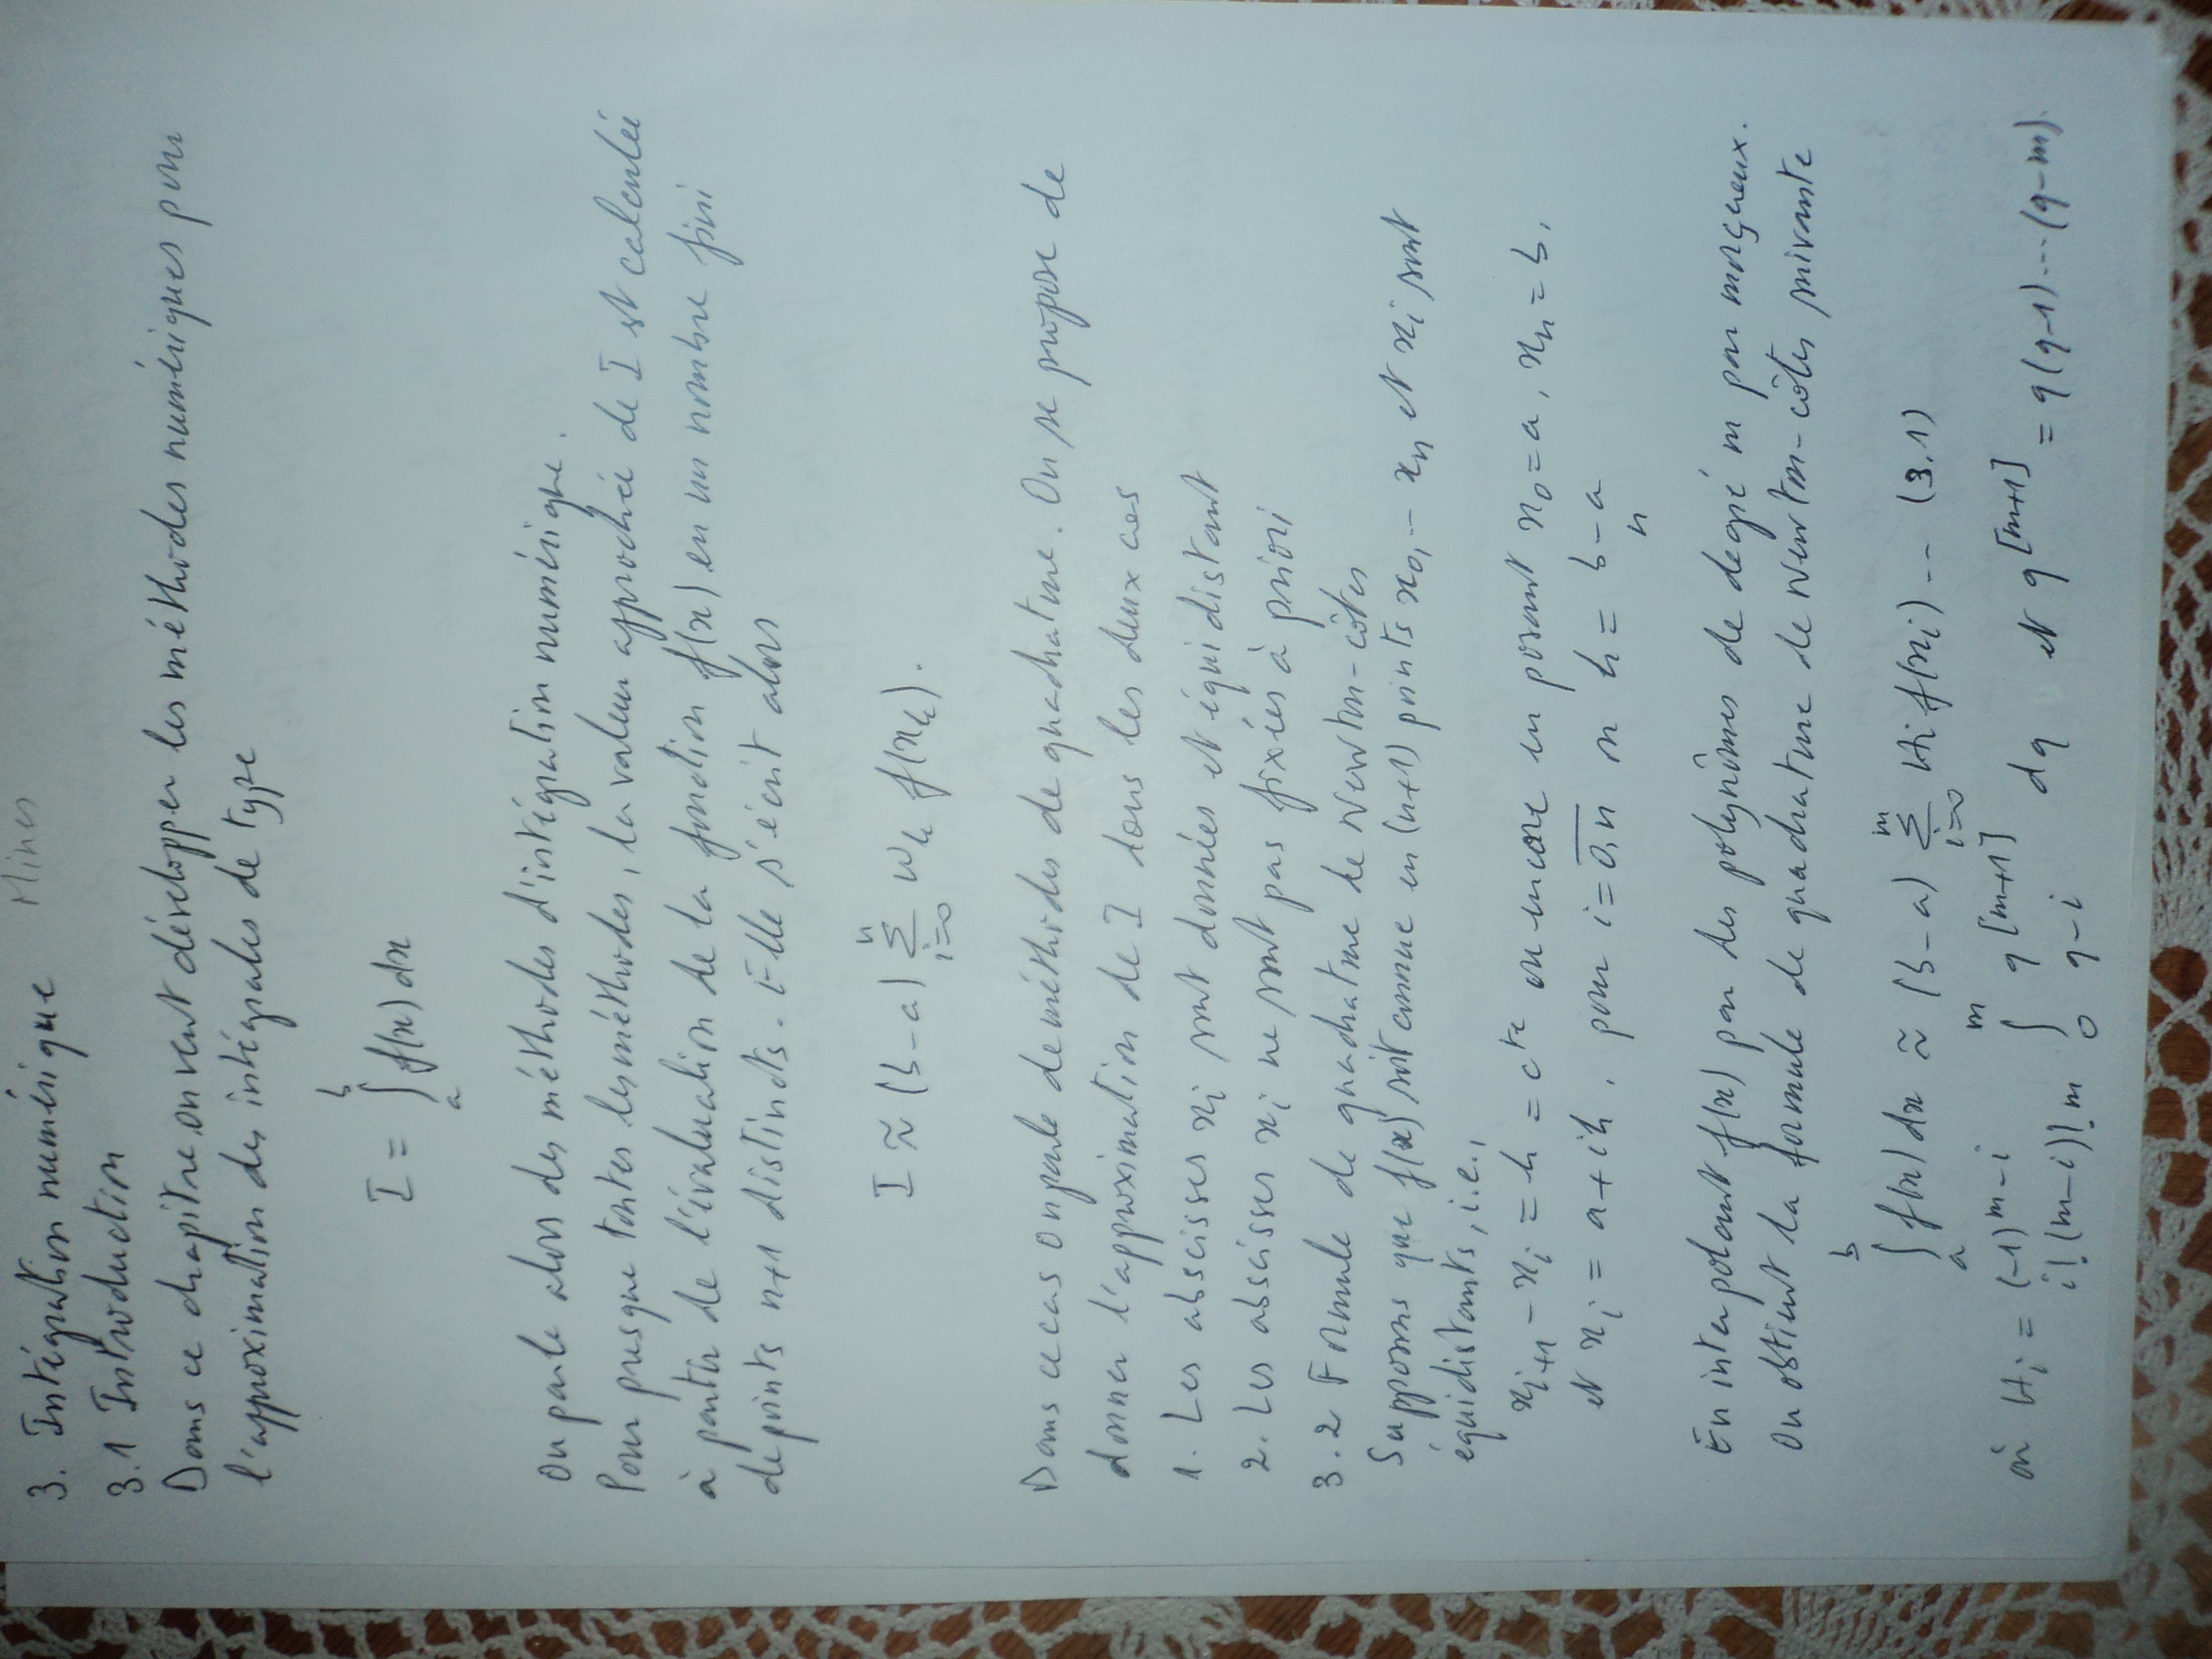 Mines
3. Intégration numérique
3.1 Introduction
Dans ce chapitre, on veut développer les méthodes numériques pour
l'approximation des intégrales de type
I = ∫_a^b f(x) dx
On parle alors des méthodes d'intégration numérique.
Pour presque toutes les méthodes, la valeur approchée de I est calculée
à partir de l'évaluation de la fonction f(x) en un nombre fini
de points n+1 distincts. Elle s'écrit alors
I ≈ (b-a) Σ_{i=0}^n w_k f(x_k).
Dans ce cas on parle de méthodes de quadrature. On se propose de
donner l'approximation de I dans les deux cas
1. Les abscisses x_i sont données et équidistant
2. Les abscisses x_i ne sont pas fixées à priori
3.2 Formule de quadrature de Newton-côtes
Supposons que f(x) soit connue en (n+1) points x_0, -- x_n et x_i sont
équidistants, i.e.,
x_{i+1} - x_i = h = c^te ou encore en posant x_0 = a, x_n = b,
et x_i = a + ih, pour i = \overline{0,n} si h = (b-a)/n
En interpolant f(x) par des polynômes de degré m par morceaux.
On obtient la formule de quadrature de Newton-côtes suivante
∫_a^b f(x) dx ≈ (b-a) Σ_{i=0}^m H_i f(x_i) -- (3.1)
où H_i = (-1)^{m-i} / (i!(m-i)! m) ∫_0^m q^{[m+1]} / (q-i) dq et q^{[m+1]} = q(q-1)...(q-m).